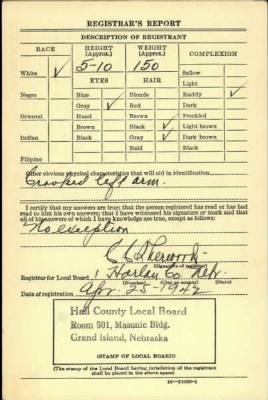 REGISTRAR'S REPORT
DESCRIPTION OF REGISTRANT
RACE HEIGHT (Approx.) WEIGHT (Approx.) COMPLEXION
White ✓ 5-10 150 Sallow
EYES HAIR Light
Negro Blue Blonde Ruddy ✓
Gray ✓ Red Dark
Oriental Hazel Black Freckled
Brown Brown ✓ Light brown
Indian Black Gray ✓ Dark brown
Bald Black
Filipino
Other obvious physical characteristics that will aid in identification
Crooked left arm.
I certify that my answers are true; that the person registered has read or has had
read to him his own answers; that I have witnessed his signature or mark and that
all of his answers of which I have knowledge are true, except as follows:
No exception
Sherwood
(Signature of registrar)
Registrar for Local Board 1 Harlan Co Nebr.
(Number) (City or county) (State)
Date of registration Apr. 25-1942
Hall County Local Board
Room 501, Masonic Bldg.
Grand Island, Nebraska
(STAMP OF LOCAL BOARD)
(The stamp of the Local Board having jurisdiction of the registrant
shall be placed in the above space)